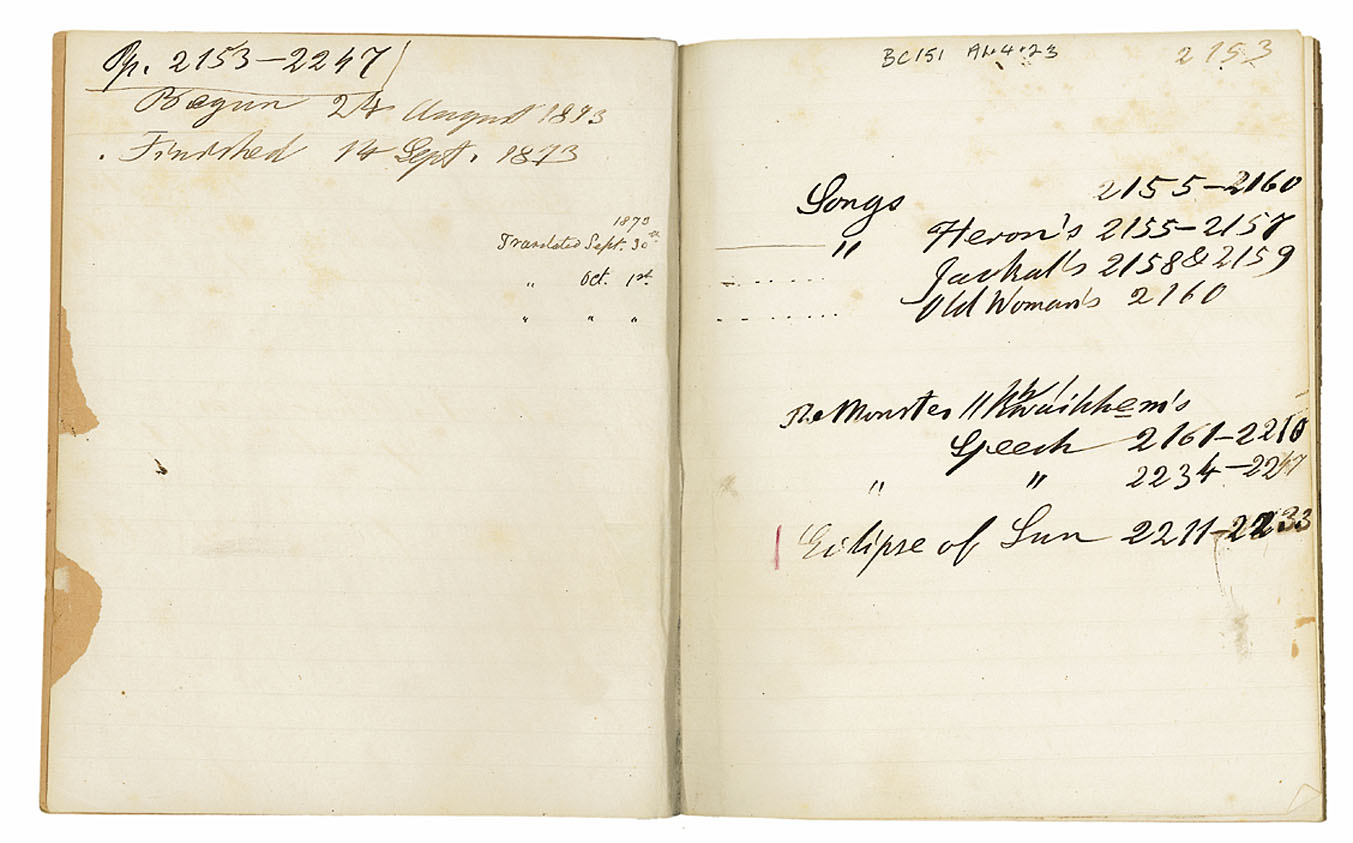 Pp. 2153–2247
Begun 24 August 1873
Finished 14 Sept. 1873
1873
Translated Sept. 30th
" Oct. 1st
" " "
BC151 A1.4.23
2153
Songs 2155–2160
" Heron's 2155–2157
Jackal's 2158 & 2159
Old Woman's 2160
The Monster
Speech 2161–2210
" " 2234–2247
Eclipse of Sun 2211–2233